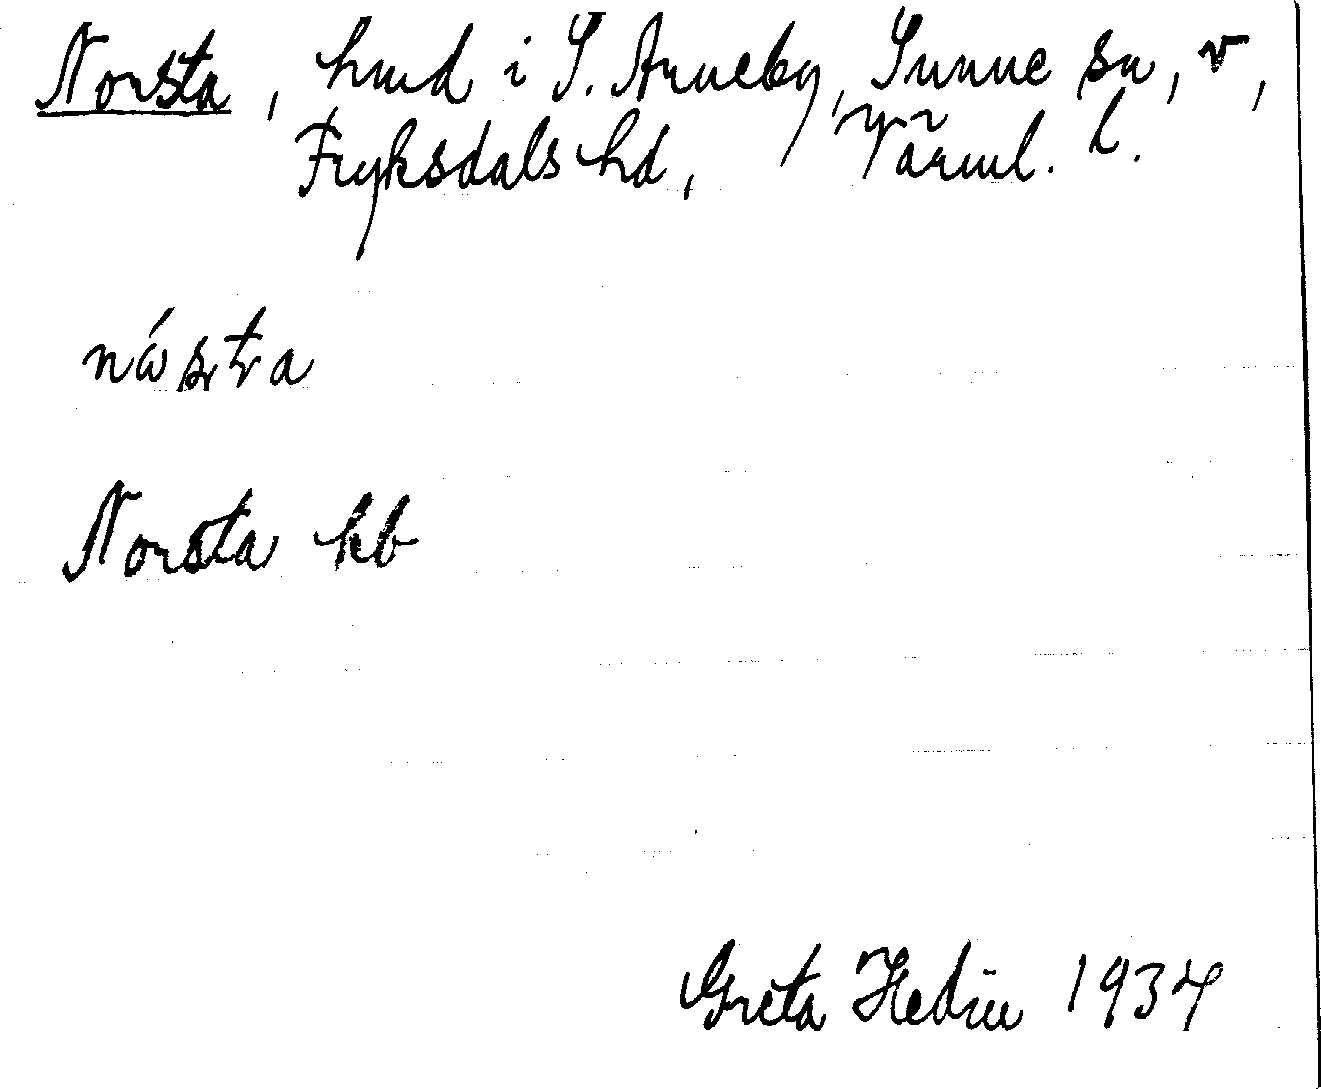 Norsta, hmd i S. Arneby, Sunne sn, v,
Fryksdals hd, Värml. l.
Norsta kb
Greta Hedin 1934